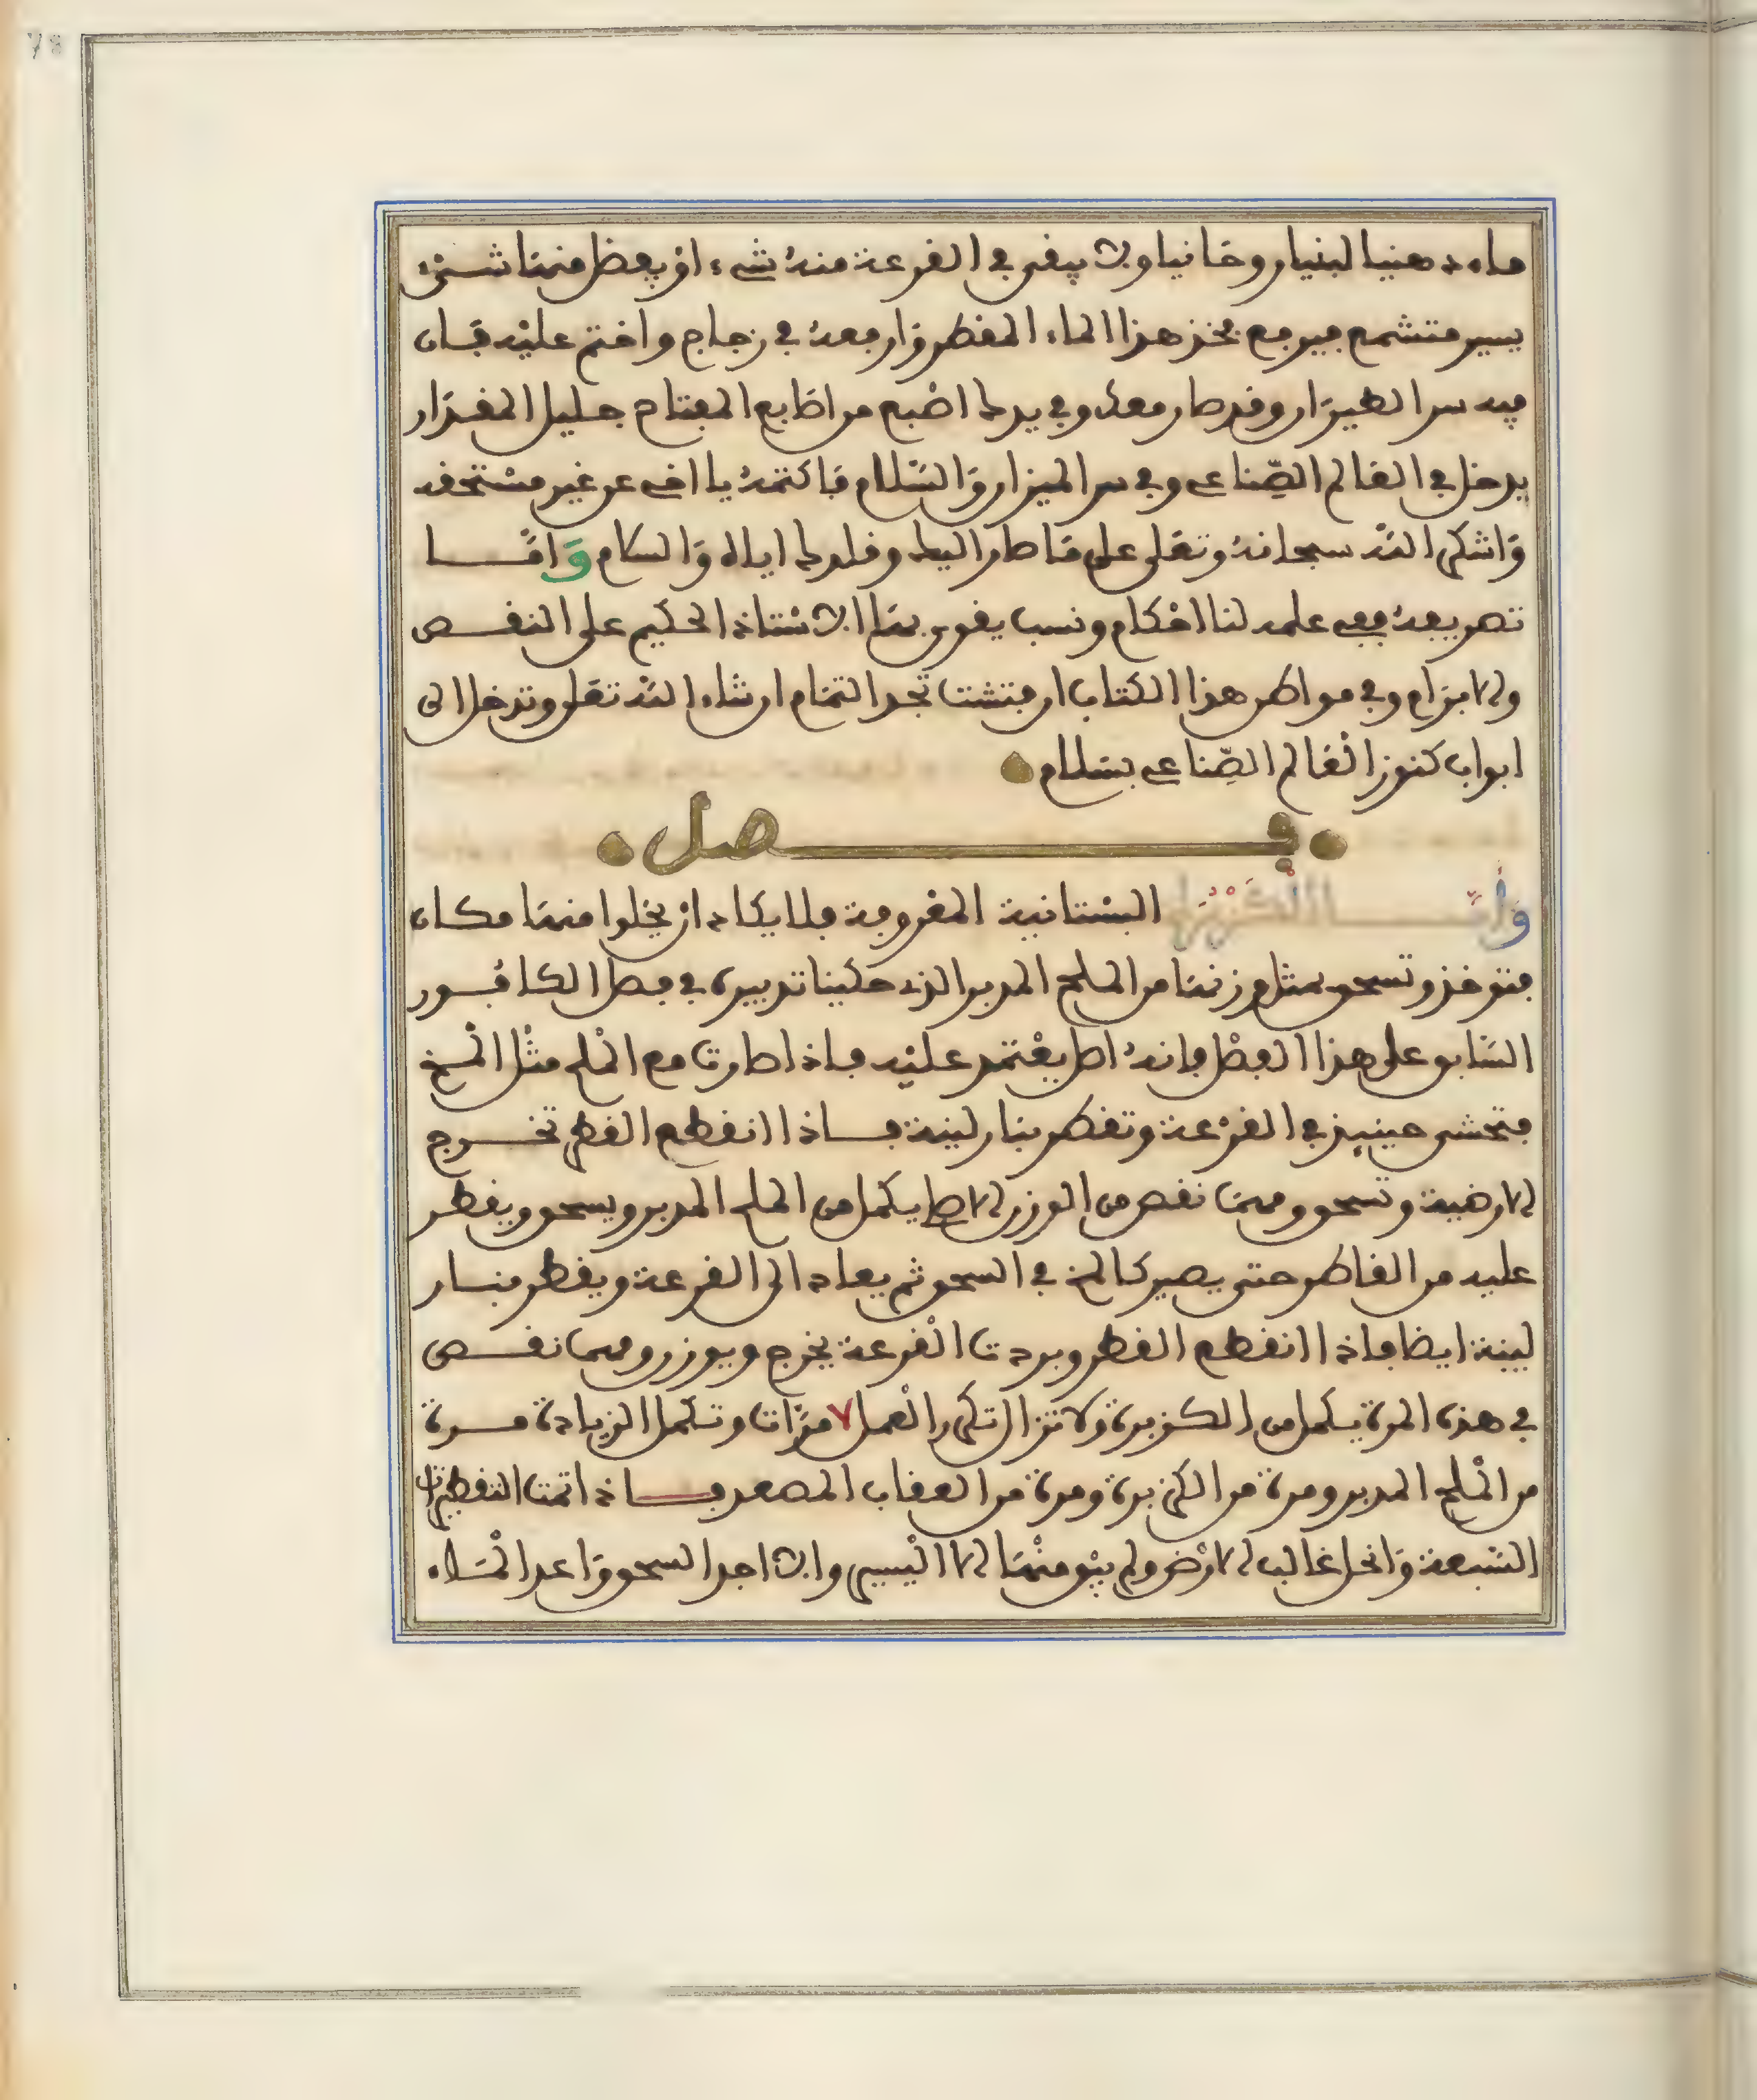 ماء دهنيا لبنيا روحانيا ولا يبقى في القرعة منه شيء او يفضل منها شيء
يسير متشمع فيرجع فخذ هذا الماء المقطر وارفعه في زجاج واختم عليه فان
فيه سر الطيران وقد صار معك وفي يدك اصبع من اصابع المفتاح جليل المقدار
يدخل في العالم الصناعي وفي سر الميزان والسلام فاكتمه يا اخي عن غير مستحقه
واشكر الله سبحانه وتعلى على ما صار اليك وقلدك اياه والسلام وامــا
تصريفه ففي علمه لنا احكام ونسب يقوى بها الاستاذ الحكيم على النقــص
والابرام وفي مواطن هذا الكتاب ان فتشت تجد التمام ان شاء الله تعلى وتدخل الى
ابواب كنوز العالم الصناعي بسلام
فــصل
وامــا الكزبرة البستانية المعروفة فلا يكاد ان يخلوا منها مكان
فتوخذ وتسحق بمثل وزنها من الملح المدبر الذي حكينا تدبيره في فصل الكافــور
السابق على هذا الفصل فانه اصل يعتمد عليه فاذا صارت مع الملح مثل المخ
فتحشى حينيذ في القرعة وتقطر بنار لينة فــاذا انقطع القطر تخــرج
الارضية وتسحق ومهما نقص من الوزن الاصلي يكمل من الملح المدبر ويسحق ويقطر
عليه من القاطر حتى يصير كالمخ في السحق ثم يعاد الى القرعة ويقطر بنــار
لينة ايضا فاذا انقطع القطر وبردت القرعة يخرج ويوزن ومهما نقــص
في هذه المرة يكمل من الكزبرة ولا تزال تكرر العمل ٧ مرات وتكمل الزيادة مــرة
من الملح المدبر ومرة من الكزبرة ومرة من العقاب المصعد فــاذا تمت التقطيرات
السبعة وانحل غالب الارض ولم يبق منها الا اليسير والا اجد السحق واعد المــاء